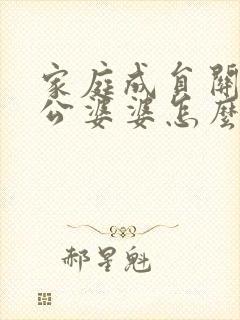 家庭成自關
公婆婆怎麼
郝星魁